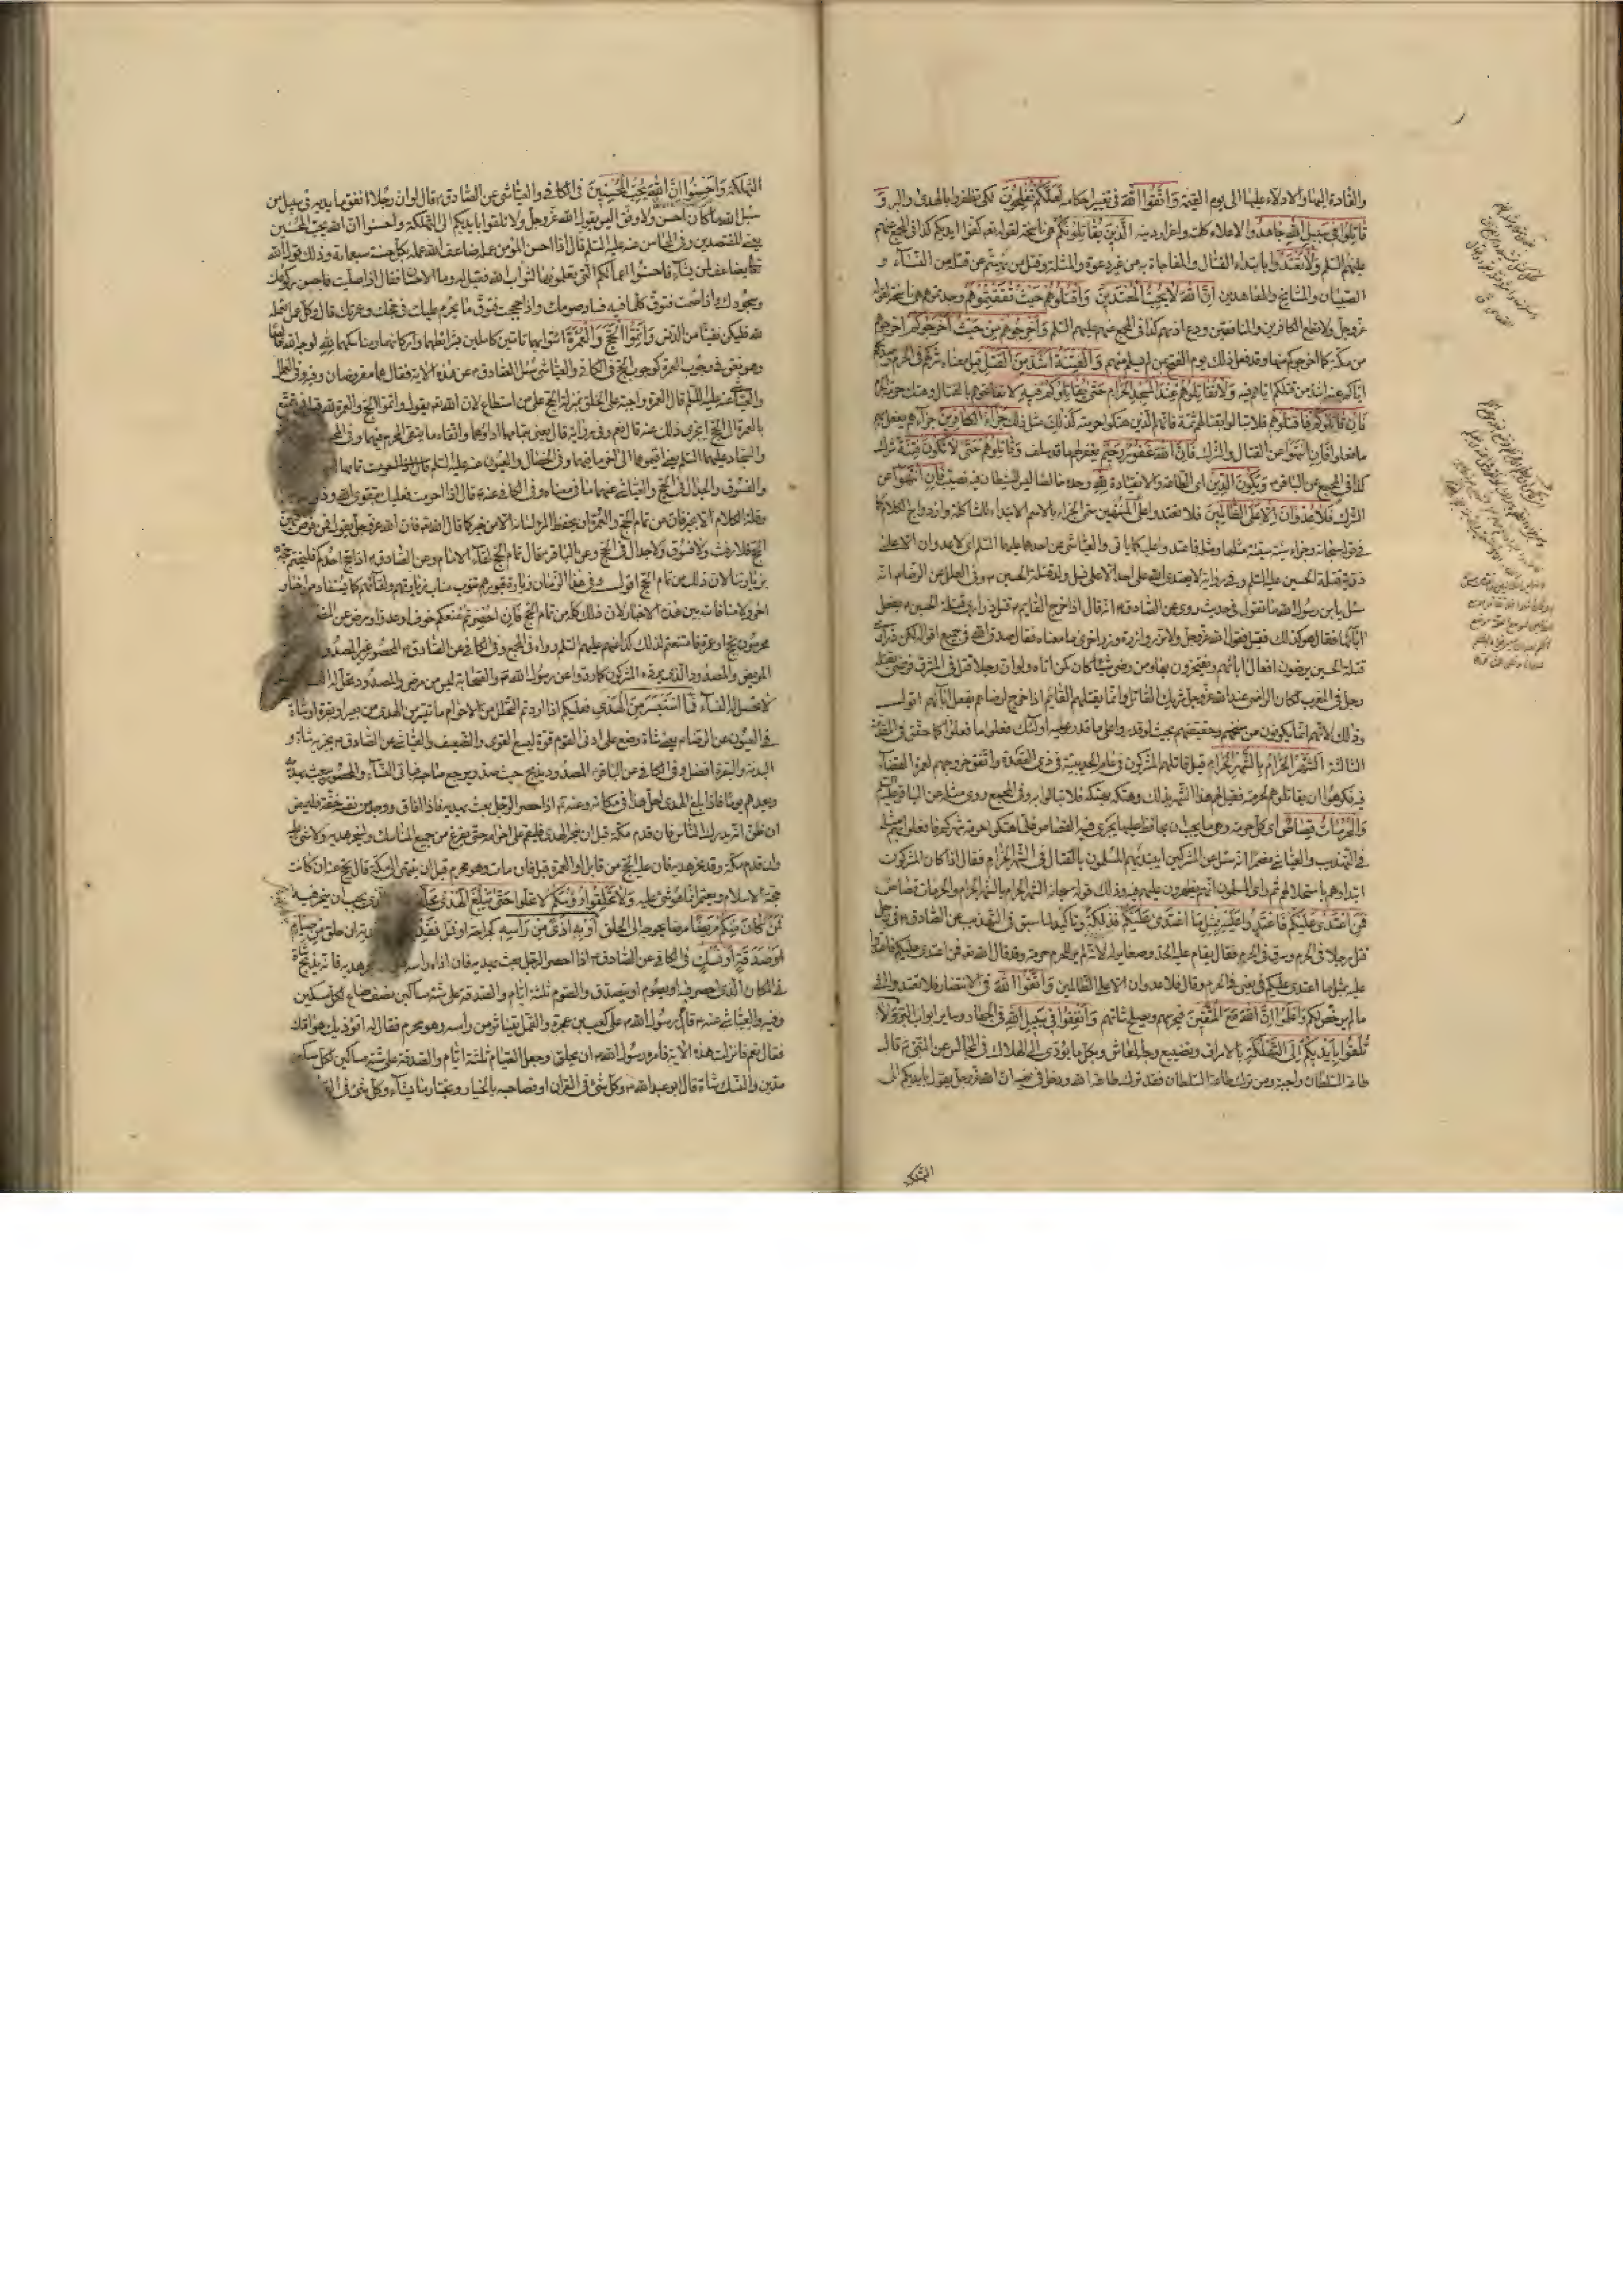 والقادة اليها والادلاء عليها الى يوم القيمة وَاتَّقُوا اللَّهَ فى تغيير احكامه لَعَلَّكُمْ تُفْلِحُونَ لكى تظفروا بالهدى والبر وَ
قَاتِلُوا فِي سَبِيلِ اللَّهِ جاهدوا لاعلاء كلمته واعزاز دينه الَّذِينَ يُقَاتِلُونَكُمْ هى ناسخة لقوله تعالى كفوا ايديكم كذا فى المجمع عنهم
عليهم السلم وَلَا تَعْتَدُوا بابتداء القتال والمفاجاة به من غير دعوة والمثلة وقتل من نهيتم عن قتله من النساء و
الصبيان والمشايخ والمعاهدين إِنَّ اللَّهَ لَا يُحِبُّ الْمُعْتَدِينَ وَاقْتُلُوهُمْ حَيْثُ ثَقِفْتُمُوهُمْ وجدتموهم هى ناسخة لقوله
عز وجل ولا تطع الكافرين والمنافقين ودع اذيهم كذا فى المجمع عنهم عليهم السلم وَأَخْرِجُوهُمْ مِنْ حَيْثُ أَخْرَجُوكُمْ
من مكة كما اخرجوكم منها وقد فعل ذلك يوم الفتح بمن لم يسلم منهم وَالْفِتْنَةُ أَشَدُّ مِنَ الْقَتْلِ قيل معناه شركهم فى الحرم
اياكم عنه اشد من قتلكم اياهم فيه وَلَا تُقَاتِلُوهُمْ عِنْدَ الْمَسْجِدِ الْحَرَامِ حَتَّى يُقَاتِلُوكُمْ فِيهِ لا تفاتحوهم بالقتال وهتك حرمة
فَإِنْ قَاتَلُوكُمْ فَاقْتُلُوهُمْ فلا تبالوا بقتالهم ثمة فانهم الذين هتكوا حرمته كَذَلِكَ مثل ذلك جَزَاءُ الْكَافِرِينَ جزاؤهم يفعل بهم
ما فعلوا فَإِنِ انْتَهَوْا عن القتال والشرك فَإِنَّ اللَّهَ غَفُورٌ رَحِيمٌ يغفر لهم ما قد سلف وَقَاتِلُوهُمْ حَتَّى لَا تَكُونَ فِتْنَةٌ شرك
كذا فى المجمع عن الباقر وَيَكُونَ الدِّينُ اى الطاعة والانقياد لِلَّهِ وحده خالصا ليس للشيطان فيه نصيب فَإِنِ انْتَهَوْا عن
الشرك فَلَا عُدْوَانَ إِلَّا عَلَى الظَّالِمِينَ فلا تعتدوا على المنتهين سمى الجزاء بالاسم الابتداء للمشاكلة وازدواج الكلام كما
فى قوله سبحانه وجزاء سيئة سيئة مثلها ومثله فاعتدوا عليه كما ياتى والعياشى عن احدهما عليهما السلم اى لا عدوان الا على
ذرية قتلة الحسين عليه السلم وفى رواية لا يعتدى الله على احد الا على نسل ولد قتلة الحسين وفى العلل عن الرضا انه
سئل يابن رسول الله ما تقول فى حديث روى عن الصادق انه قال اذا خرج القايم قتل ذرارى قتلة الحسين بفعل
آبائها فقال هو كذلك فقيل فقول الله عز وجل ولا تزر وازرة وزر اخرى ما معناه فقال صدق الله فى جميع اقواله لكن ذرارى
قتلة الحسين يرضون افعال آبائهم ويفتخرون بها ومن رضى شيئا كان كمن اتاه ولو ان رجلا قتل فى المشرق فرضى بقتله
رجل فى المغرب لكان الراضى عند الله عز وجل شريك القاتل وانما يقتلهم القائم اذا خرج لرضاهم بفعل آبائهم اقول
وذلك لانهم انما يكونون من سنخهم وحقيقتهم بحيث لو قدروا على ما قدر عليه اولئك فعلوا ما فعلوا كما حقق فى المقدمة
الثالثة الشَّهْرُ الْحَرَامُ بِالشَّهْرِ الْحَرَامِ قيل قاتلهم المشركون فى عام الحديبية فى ذى القعدة واتفق خروجهم لعمرة القضاء
فيه فكرهوا ان يقاتلوهم لحرمته فقيل لهم هذا الشهر بذاك وهتكه بهتكه فلا تبالوا به وفى المجمع روى مثله عن الباقر
وَالْحُرُمَاتُ قِصَاصٌ اى كل حرمة وهو ما يجب ان يحافظ عليها يجرى فيه القصاص فلما هتكوا حرمة شهركم فافعلوا بهم مثله
فى التهذيب والعياشى مضمرا انه سئل عن المشركين ايبتديهم المسلمون بالقتال فى الشهر الحرام فقال اذا كان المشركون
ابتداوهم باستحلالهم ثم راى المسلمون انهم يظهرون عليهم فيه وذلك قوله سبحانه الشهر الحرام بالشهر الحرام والحرمات قصاص
فَمَنِ اعْتَدَى عَلَيْكُمْ فَاعْتَدُوا عَلَيْهِ بِمِثْلِ مَا اعْتَدَى عَلَيْكُمْ فذلكة وتاكيد لما سبق فى التهذيب عن الصادق فى رجل
قتل رجلا فى الحرم وسرق فى الحرم فقال يقام عليه الحد وصغار له لانه لم ير للحرم حرمة وقد قال الله تعالى فمن اعتدى عليكم فاعتدوا
عليه بمثل ما اعتدى عليكم يعنى فى الحرم وقال فلا عدوان الا على الظالمين وَاتَّقُوا اللَّهَ فى الانتصار فلا تعتدوا الى
ما لم يرخص لكم وَاعْلَمُوا أَنَّ اللَّهَ مَعَ الْمُتَّقِينَ فيحرسهم ويصلح شانهم وَأَنْفِقُوا فِي سَبِيلِ اللَّهِ فى الجهاد وساير ابواب البر وَلَا
تُلْقُوا بِأَيْدِيكُمْ إِلَى التَّهْلُكَةِ بالاسراف وتضييع وجه المعاش وبكل ما يؤدى الى الهلاك فى المجالس عن النبى قال
طاعة السلطان واجبة ومن ترك طاعة السلطان فقد ترك طاعة الله ودخل فى نهيه ان الله عز وجل يقول ولا تلقوا بايديكم الى
التهلكة
التهلكة وَأَحْسِنُوا إِنَّ اللَّهَ يُحِبُّ الْمُحْسِنِينَ فى الكافى والعياشى عن الصادق قال لو ان رجلا انفق ما فى يديه فى سبيل من
سبل الله ما كان احسن ولا وفق اليس يقول الله عز وجل ولا تلقوا بايديكم الى التهلكة واحسنوا ان الله يحب المحسنين
يعنى المقتصدين وفى المحاسن عنه عليه السلم قال اذا احسن المؤمن عمله ضاعف الله عمله بكل حسنة سبعمائة وذلك قول الله
تعالى يضاعف لمن يشاء فاحسنوا اعمالكم التى تعملونها لثواب الله فقيل له وما الاحسان فقال اذا صليت فاحسن ركوعك
وسجودك واذا صمت فتوق كلما فيه فساد صومك واذا حججت فتوق ما يحرم عليك فى حجك وعمرتك قال وكل عمل تعمله
لله فليكن نقيا من الدنس وَأَتِمُّوا الْحَجَّ وَالْعُمْرَةَ ائتوا بهما تامين كاملين بشرائطهما واركانهما ومناسكهما لِلَّهِ لوجه الله
وهو نص فى وجوب العمرة كوجوب الحج فى الكافى والعياشى سئل الصادق عن هذه الاية فقال هما مفروضان وفيه وفى العلل
والعياشى عنه عليه السلم قال العمرة واجبة على الخلق بمنزلة الحج على من استطاع لان الله تعالى يقول واتموا الحج والعمرة لله
بالعمرة الى الحج ايجزى ذلك عنه قال نعم وفى رواية قال يعنى بتمامها اداؤهما واتقاء ما يتقى المحرم فيهما وفى المجمع
والسجاد عليهما السلم يعنى اقيموها الى آخر ما فيهما وفى الخصال والعيون عنه عليه السلم
والفسوق والجدال فى الحج والعياشى عنهما ما فى معناه وفى الكافى عنه قال اذا احرمت فعليك بتقوى الله وذكر
وقلة الكلام الا بخير فان من تمام الحج والعمرة ان يحفظ المرء لسانه الا من خير كما قال الله تعالى فان الله عز وجل يقول فمن فرض فيهن
الحج فلا رفث ولا فسوق ولا جدال فى الحج وعن الباقر قال تمام الحج لقاء الامام وعن الصادق اذا حج احدكم فليختم حجه
بزيارتنا لان ذلك من تمام الحج اقول وفى هذا الزمان زيارة قبورهم تنوب مناب زيارتهم ولقائهم كما يستفاد من اخبار
اخر ولا منافات بين هذه الاخبار لان ذلك كله من تمام الحج فَإِنْ أُحْصِرْتُمْ منعكم خوف او عدو او مرض عن المضى
محرمون بحج او عمرة فامتنعتم لذلك كذا عنهم عليهم السلم رواه فى المجمع وفى الكافى عن الصادق المحصور غير المصدود
المريض والمصدود الذى يصده المشركون كما ردوا عن رسول الله والصحابة ليس من مرض والمصدود يحل له
لا تحل له النساء فَمَا اسْتَيْسَرَ مِنَ الْهَدْيِ فعليكم اذا اردتم التحلل من الاحرام ما تيسر من الهدى من بعير او بقرة او شاة
فى العيون عن الرضا يعنى شاة وضع على ادنى القوم قوة ليسع القوى والضعيف والعياشى عن الصادق يجزيه شاة و
البدنة والبقرة افضل وفى الكافى عن الباقر المصدود يذبح حيث صد ويرجع صاحبه فياتى النساء والمحصور يبعث بهديه
ويعدهم يوما فاذا بلغ الهدى احل هذا فى مكانه وعنه اذا احصر الرجل بعث بهديه فاذا افاق ووجد من نفسه خفة فليمض
ان ظن انه يدرك الناس فان قدم مكة قبل ان ينحر الهدى فليقم على احرامه حتى يفرغ من جميع المناسك ولينحر هديه ولا شىء عليه
وان قدم مكة وقد نحر هديه فان عليه الحج من قابل او العمرة قيل فان مات وهو محرم قبل ان ينتهى الى مكة قال يحج عنه ان كانت
حجة الاسلام ويعتمر انما هو شىء عليه وَلَا تَحْلِقُوا رُءُوسَكُمْ لا تحلوا حَتَّى يَبْلُغَ الْهَدْيُ مَحِلَّهُ الذى يجب ان ينحر فيه
فَمَنْ كَانَ مِنْكُمْ مَرِيضًا مرضا يحوجه الى الحلق أَوْ بِهِ أَذًى مِنْ رَأْسِهِ كجراحة او قمل فَفِدْيَةٌ فدية ان حلق مِنْ صِيَامٍ
أَوْ صَدَقَةٍ أَوْ نُسُكٍ فى الكافى عن الصادق اذا احصر الرجل بعث بهديه فان اذاه راسه هديه فانه يذبح شاة
فى المكان الذى احصر فيه او يصوم او يتصدق والصوم ثلثة ايام والصدقة على ستة مساكين نصف صاع لكل مسكين
وفيه والعياشى عنه قال مر رسول الله على كعب بن عجرة والقمل يتناثر من راسه وهو محرم فقال له اتؤذيك هوامك
فقال نعم فانزلت هذه الاية فامره رسول الله ان يحلق وجعل الصيام ثلثة ايام والصدقة على ستة مساكين لكل مسكين
مدين والنسك شاة قال ابو عبد الله وكل شىء فى القران او فصاحبه بالخيار يختار ما يشاء وكل شىء فى القران